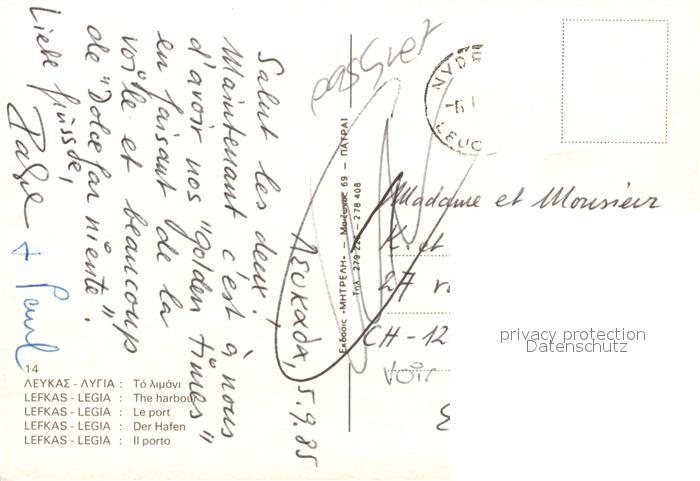 Λευκάδα, 5.9.85
Salut les deux!
Maintenant c'est à nous
d'avoir nos "golden times"
en faisant de la
voile et beaucoup
de "Dolce far niente".
Liebi Grüssde,
+ Paul
14
ΛΕΥΚΑΣ - ΛΥΓΙΑ : Τό λιμάνι
LEFKAS - LEGIA : The harbour
LEFKAS - LEGIA : Le port
LEFKAS - LEGIA : Der Hafen
LEFKAS - LEGIA : Il porto
Εκδοσις «ΜΗΤΡΕΛΗ» — Μαιζώνος 69 — ΠΑΤΡΑΙ
Τηλ. 279 226 — 278 408
Madame et Monsieur
K. et
27
CH - 12
privacy protection
Datenschutz